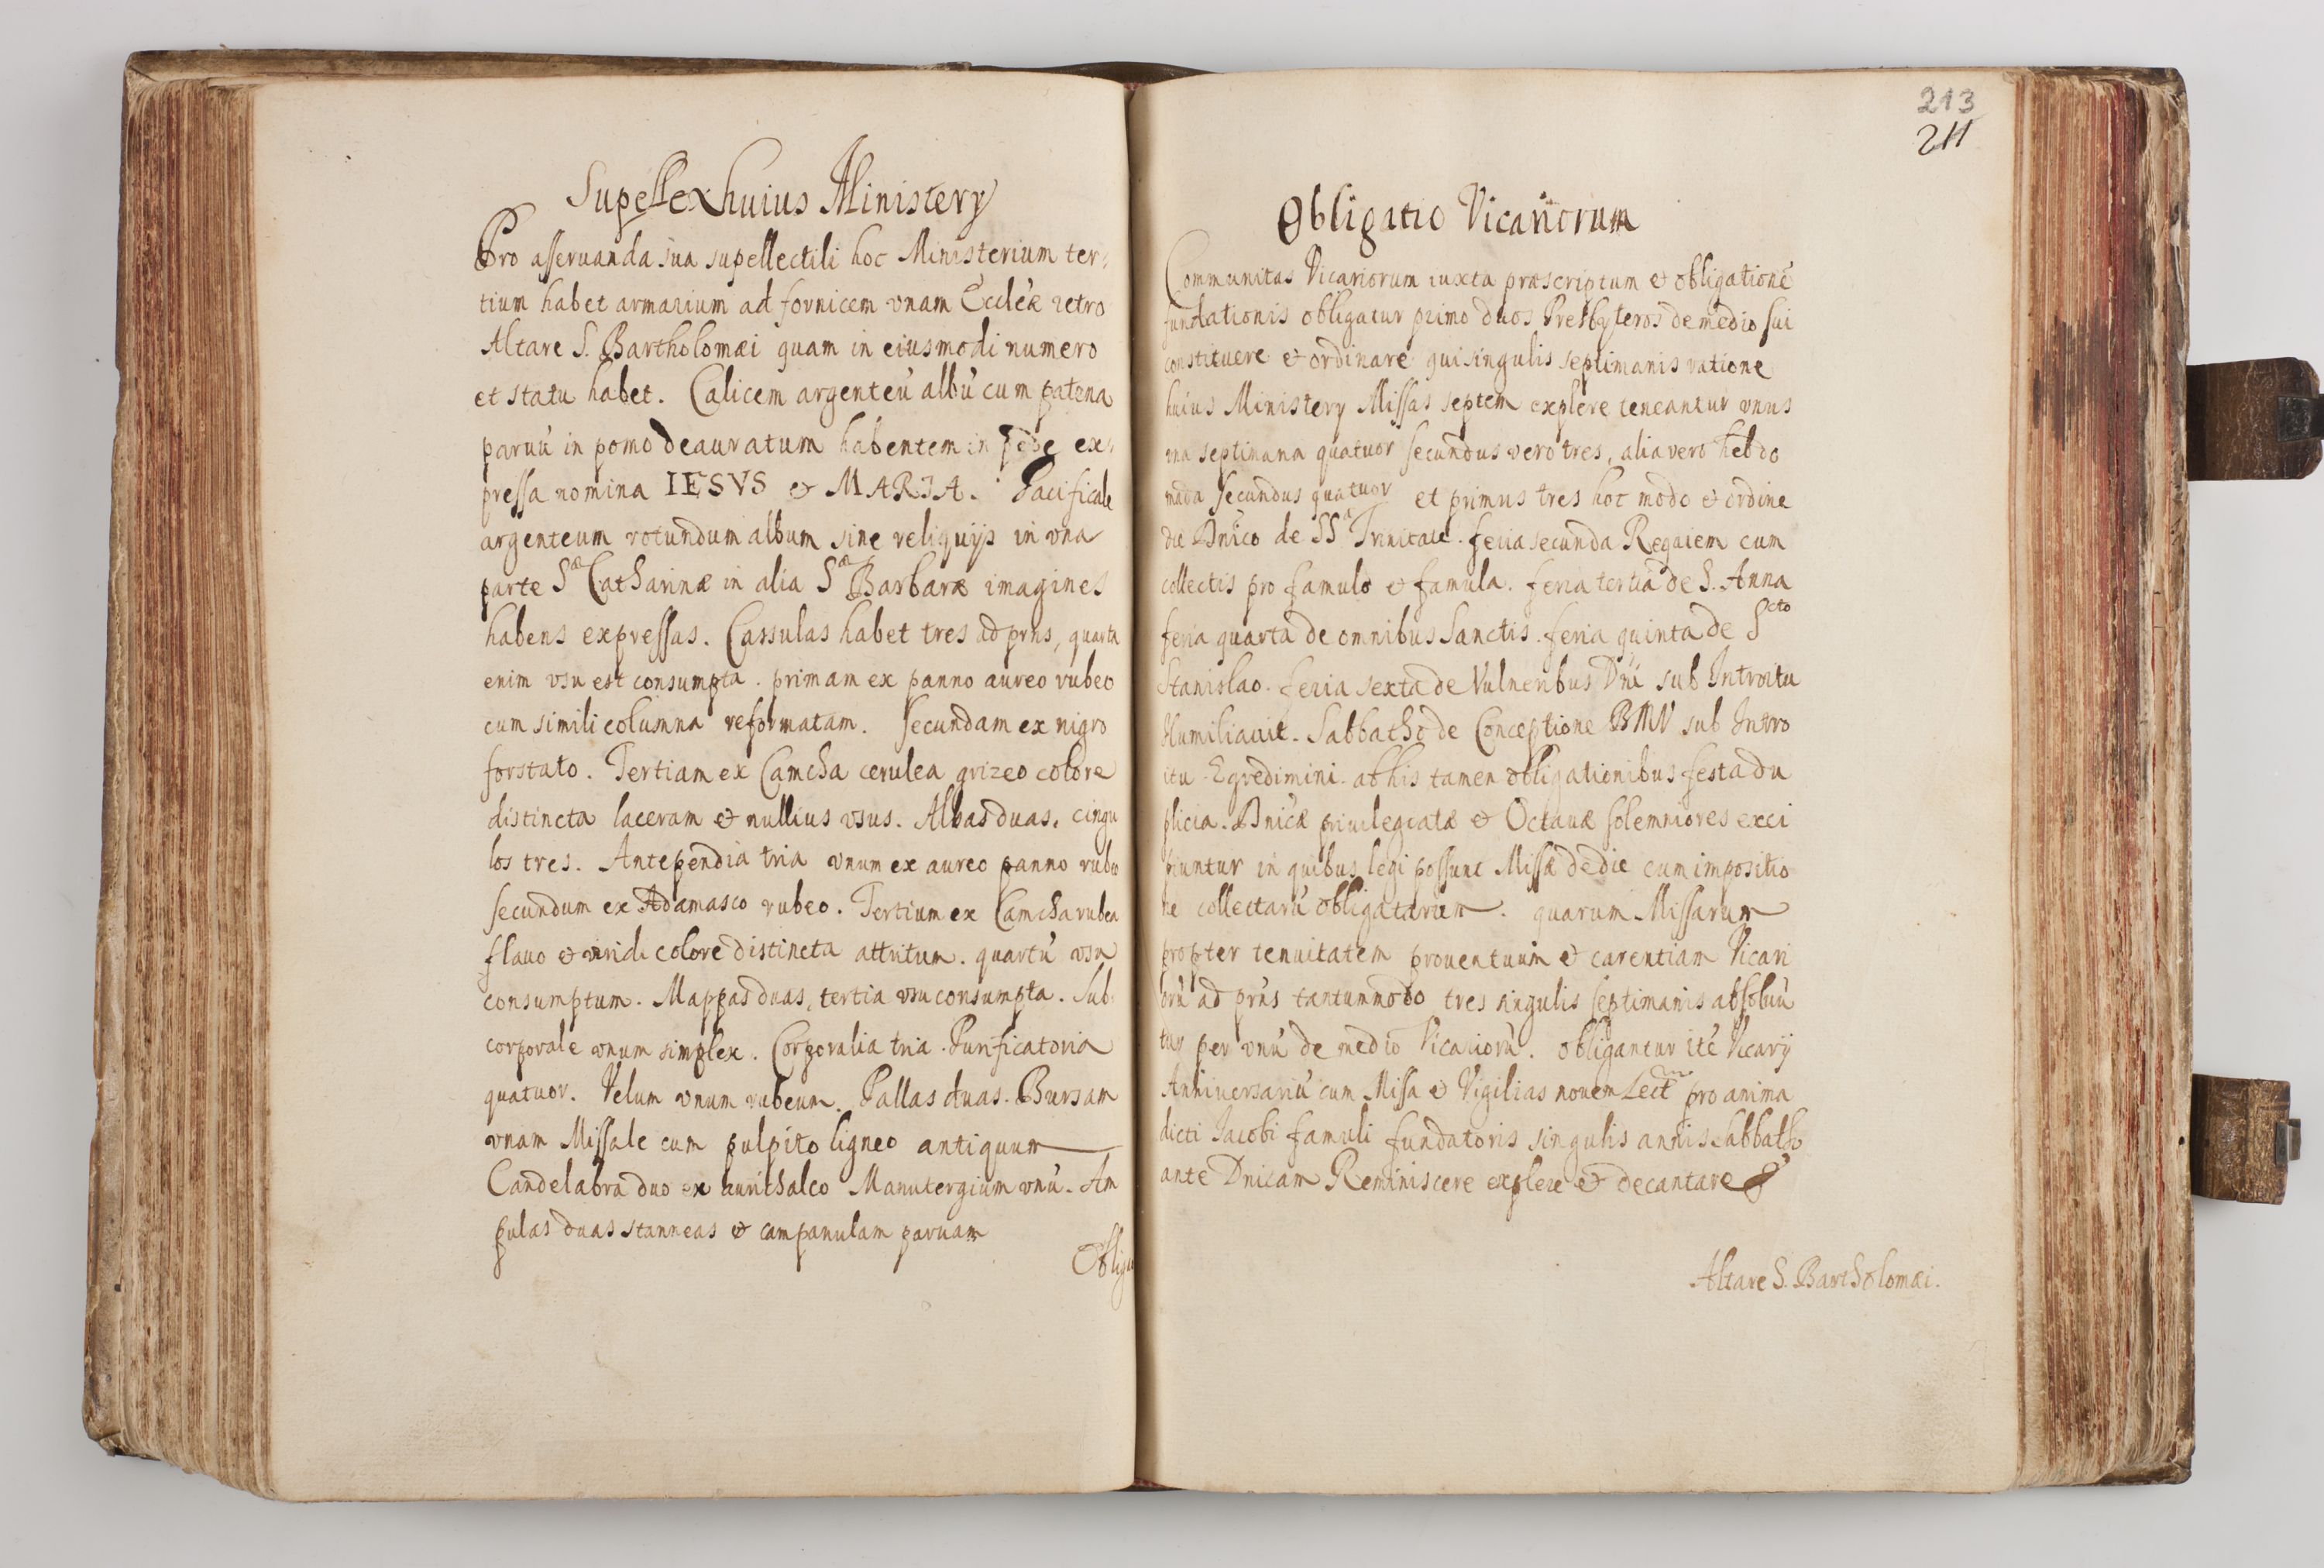 Supellex huius Ministerÿ
Pro asseruanda sua supellectili hoc Ministerium ter-
tium habet armarium ad fornicem vnam Ecclẽæ retro
Altare S. Bartholomæi quam in eiusmodi numero
et statu habet. Calicem argenteũ albũ cum patena
paruũ in pomo deauratum habentem in pede ex-
pressa nomina IESVS & MARIA. Pacificale
argenteum rotundum album sine reliquijs in vna
parte Sæ Catharinæ in alia Sæ Barbaræ imagines
habens expressas. Cassulas habet tres ad prns, quarta
enim vsu est consumpta. primam ex panno aureo rubeo
cum simili columna reformatam. Secundam ex nigro
forstato. Tertiam ex Camcha cerulea grizeo colore
distincta laceram & nullius vsus. Albas duas. cingu
los tres. Antependia tria vnum ex aureo panno rubeo
secundum ex Adamasco rubeo. Tertium ex Camcha rubea
flauo & viridi colore distincta attritum. quartũ vsu
consumptum. Mappas duas, tertia vsu consumpta. Sub-
corporale vnum simplex. Corporalia tria. Purificatoria
quatuor. Velum vnum rubeum. Pallas duas. Bursam
vnam Missale cum pulpito ligneo antiquum
Candelabra duo ex aurichalco Manutergium vnũ. Am
pulas duas stanneas & campanulam paruam
Obliga
213
211
Obligatio Vicariorum
Communitas Vicariorum iuxta præscriptum & obligationẽ
fundationis obligatur primo duos Presbyteros de medio sui
constituere & ordinare qui singulis septimanis ratione
huius Ministerÿ Missas septem explere teneantur vnus
vna septimana quatuor secundus vero tres, alia vero hebdo
mada secundus quatuor et primus tres hoc modo & ordine
die Dnico de SSa Trinitate. feria secunda Requiem cum
collectis pro famulo & famula. feria tertia de S. Anna
feria quarta de omnibus Sanctis. feria quinta de Scto
Stanislao. feria sexta de Vulneribus Dni sub Introitu
Humiliauit. Sabbatho de Conceptione BMV sub Intro
itu Egredimini. ab his tamen obligationibus festa du
plicia. Dnicæ priuilegiatæ & Octauæ solemniores exci
piuntur in quibus legi possunt Missæ de die cum impositio
ne collectarũ obligatarum. quarum Missarum
propter tenuitatem prouentuum & carentiam Vicari
orũ ad prns tantummodo tres singulis septimanis absoluũ
tur per vnũ de medio Vicariorũ. obligantur itẽ Vicarij
Anniuersariũ cum Missa & Vigilias nouem Lectm pro anima
dicti Jacobi famuli fundatoris singulis annis Sabbatho
ante Dnicam Reminiscere explere & decantare
Altare S. Bartholomæi.